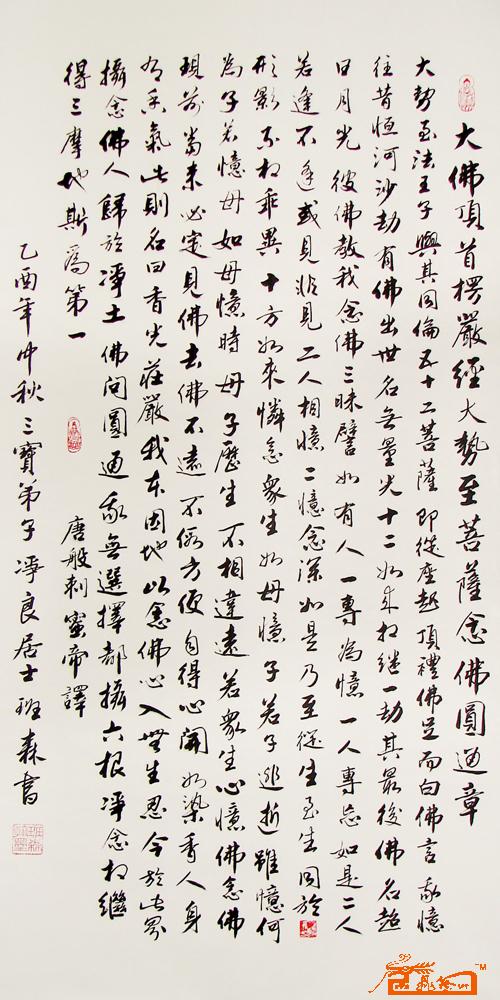 大佛頂首楞嚴經大勢至菩薩念佛圓通章
大勢至法王子與其同倫五十二菩薩即從座起頂禮佛足而白佛言我憶
往昔恒河沙劫有佛出世名無量光十二如來相繼一劫其最後佛名超
日月光彼佛教我念佛三昧譬如有人一專為憶一人專忘如是二人
若逢不逢或見非見二人相憶二憶念深如是乃至從生至生同於
形影不相乖異十方如來憐念眾生如母憶子若子逃逝雖憶何
為子若憶母如母憶時母子歷生不相違遠若眾生心憶佛念佛
現前當來必定見佛去佛不遠不假方便自得心開如染香人身
有香氣此則名曰香光莊嚴我本因地以念佛心入無生忍今於此界
攝念佛人歸於淨土佛問圓通我無選擇都攝六根淨念相繼
得三摩地斯為第一
唐般剌蜜帝譯
乙酉年仲秋三寶弟子淨良居士班森書